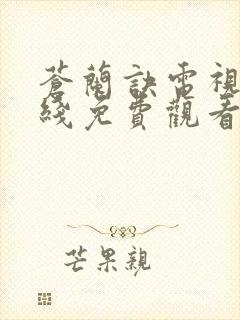 蒼蘭訣電視
綫免費觀看
芒果親